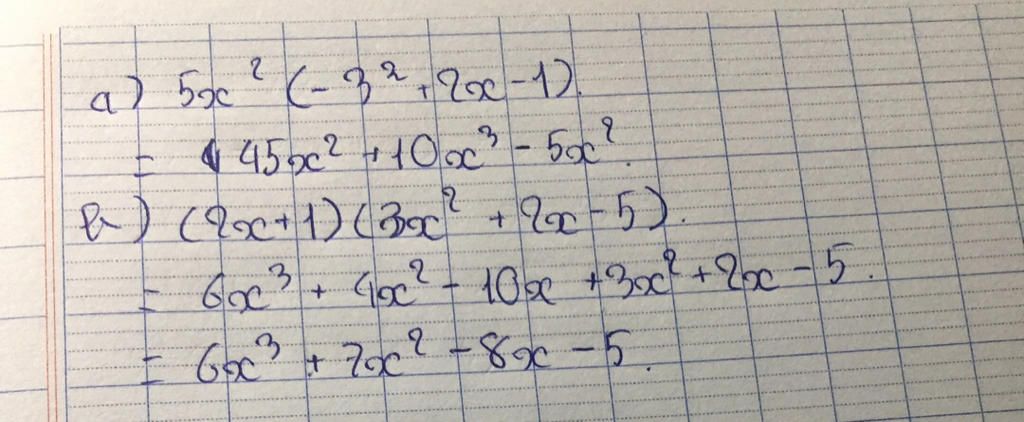 a) 5x² (-3² + 2x - 1).
= 45x² + 10x³ - 5x².
b) (2x+1)(3x² + 2x - 5).
= 6x³ + 4x² - 10x + 3x² + 2x - 5.
= 6x³ + 7x² - 8x - 5.